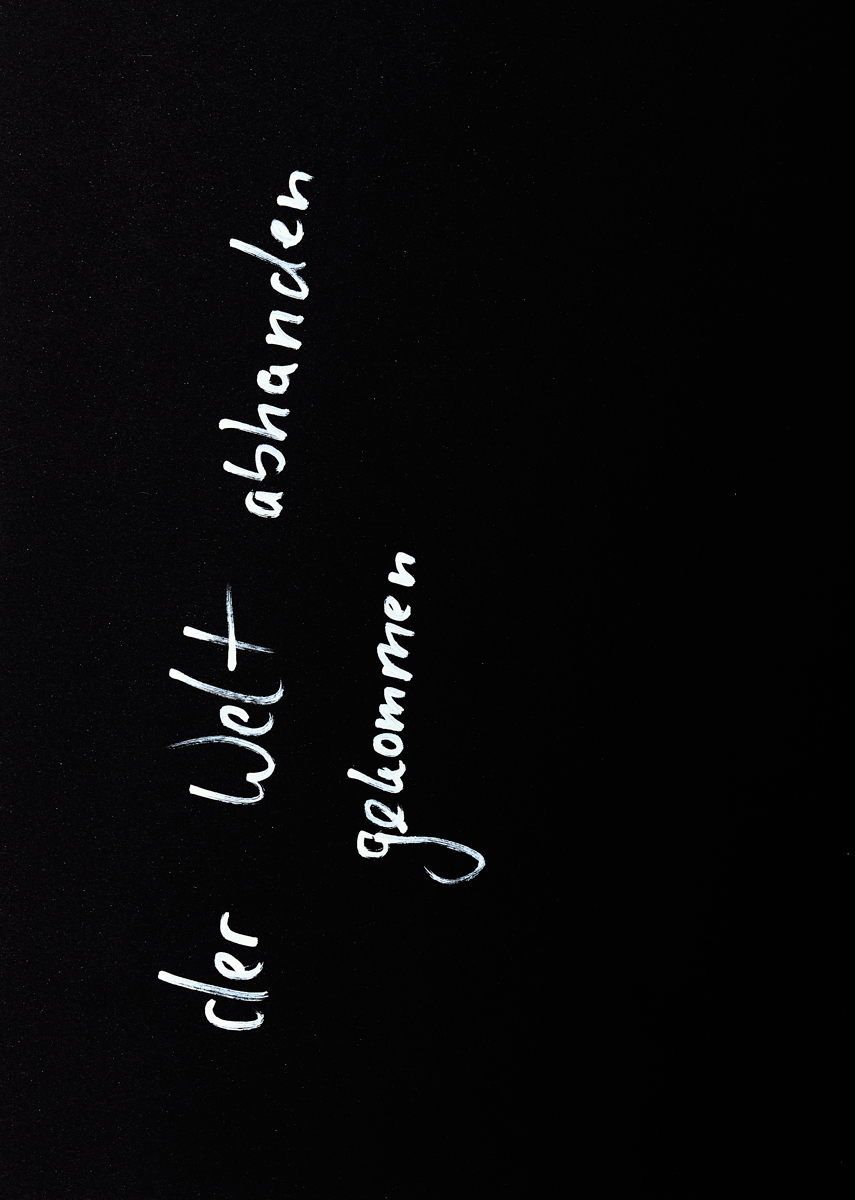 der Welt abhanden
gekommen